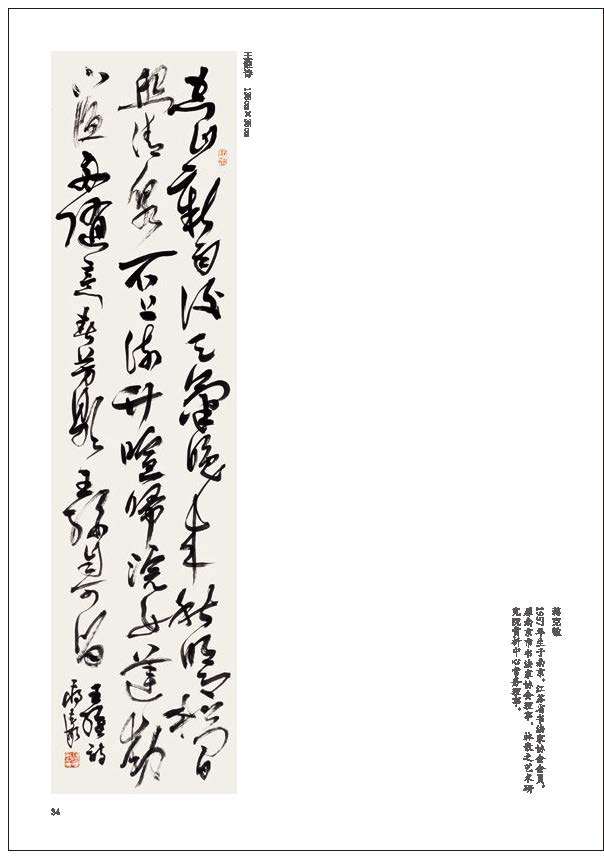 蒋克敏
1957年生于南京。江苏省书法家协会会员,
原南京市书法家协会理事,林散之艺术研
究院赏析中心常务理事。
王维诗
空山新雨後天氣晚来秋明月松間
照清泉石上流竹喧歸浣女蓮動
下漁舟隨意春芳歇王孫自可留
王維詩
蒋克敏
34